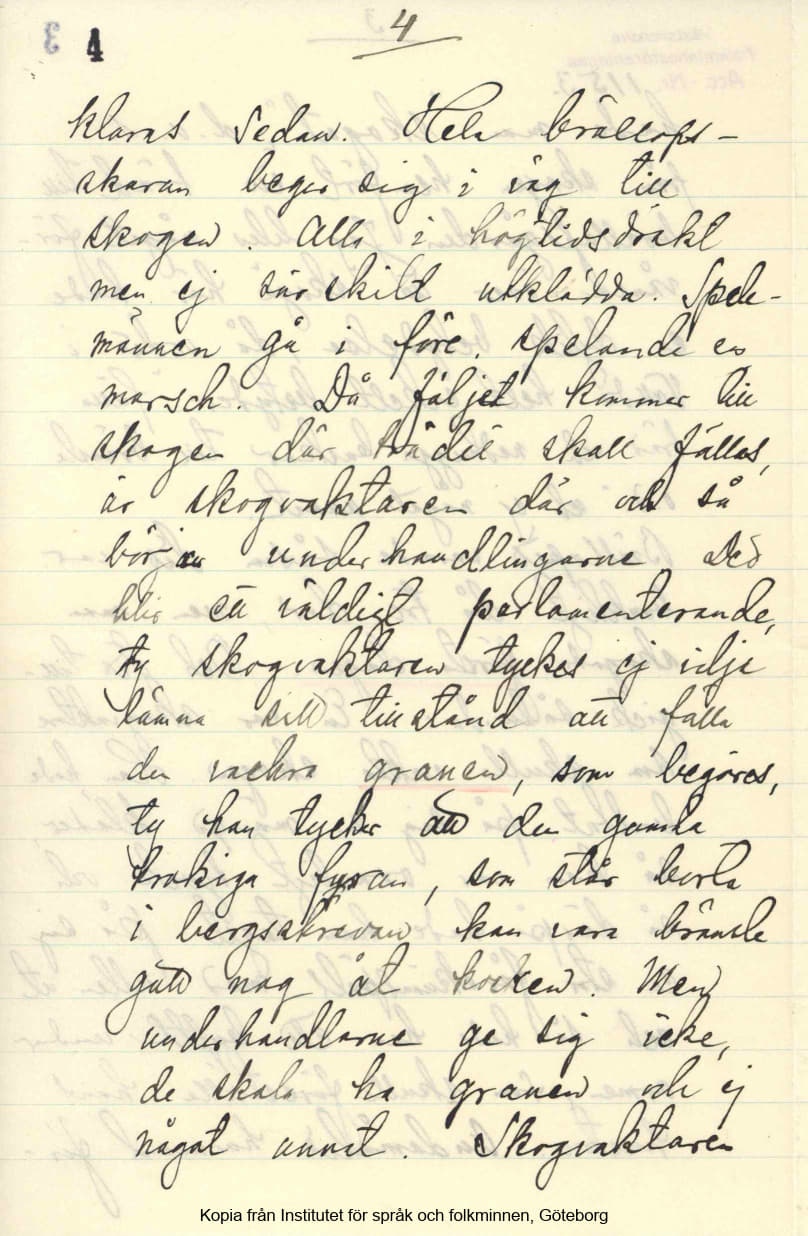 4
4
klarat sedan. Hela bröllops-
skaran beger sig i väg till
skogen. Alla i högtidsdräkt
men ej särskilt utklädda. Spele-
männen gå i före, spelande en
marsch. Då följet kommer till
skogen där trädet skall fällas,
är skogvaktaren där och så
börjar underhandlingarne. Det
blir ett väldigt parlamenterande,
ty skogvaktaren tyckes ej vilja
lämna sitt tillstånd att fälla
den vackra granen, som begäres,
ty han tycker att den gamla
krokiga furan, som står borta
i bergsskrevan kan vara bränsle
gott nog åt kocken. Men
underhandlarne ge sig icke,
de skola ha granen och ej
något annat. Skogvaktaren
Kopia från Institutet för språk och folkminnen, Göteborg